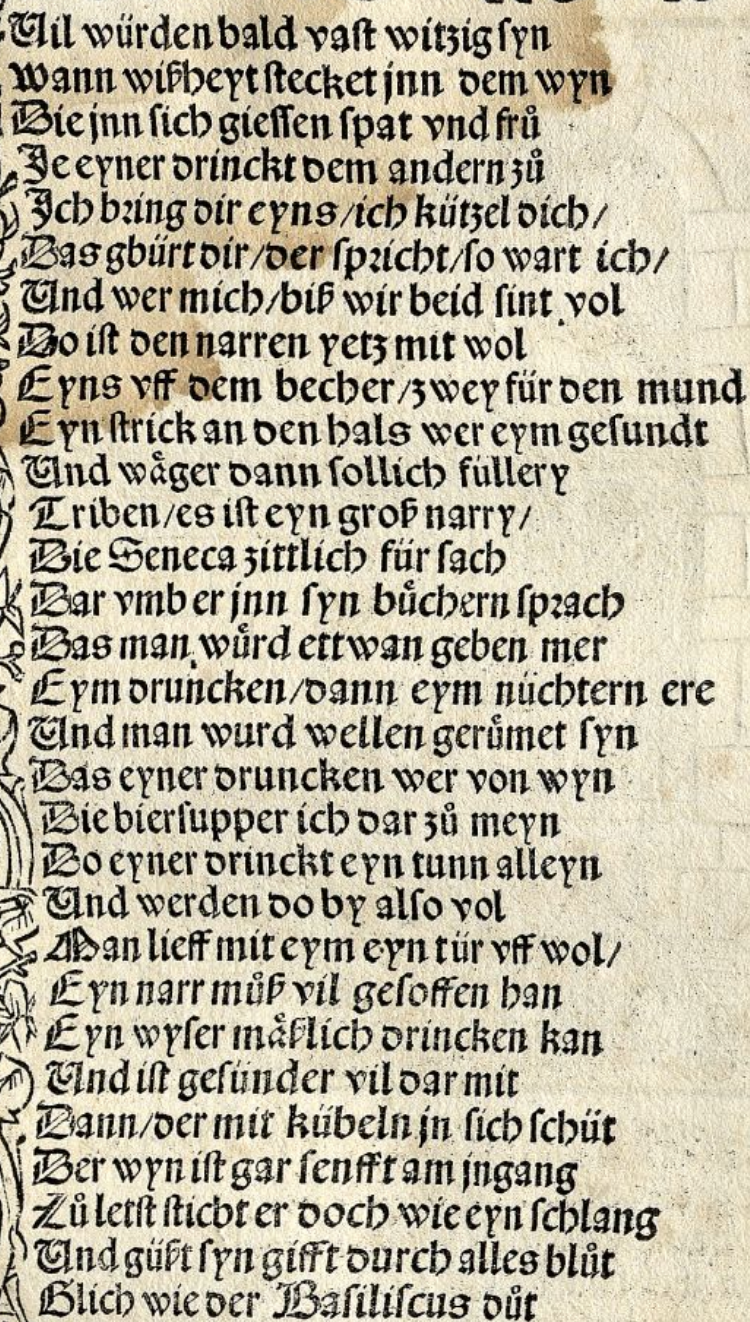 Uil würden bald vast witzig syn
Wann wißheyt stecket jnn dem wyn
Die jnn sich giessen spat vnd frů
Je eyner drinckt dem andern zů
Ich bring dir eyns/ich kützel dich/
Das gbürt dir/der spricht/so wart ich/
Und wer mich/biß wir beid sint vol
Do ist den narren yetz mit wol
Eyns vff dem becher/zwey für den mund
Eyn strick an den hals wer eym gesundt
Und wåger dann sollich füllery
Triben/es ist eyn groß narry/
Die Seneca zittlich für sach
Dar vmb er jnn syn bůchern sprach
Das man wůrd ettwan geben mer
Eym druncken/dann eym nüchtern ere
Und man wurd wellen gerůmet syn
Das eyner druncken wer von wyn
Die biersupper ich dar zů meyn
Do eyner drinckt eyn tunn alleyn
Und werden do by also vol
Man lieff mit eym eyn tür vff wol/
Eyn narr můß vil gesoffen han
Eyn wyser måßlich drincken kan
Und ist gesünder vil dar mit
Dann/der mit kübeln jn sich schüt
Der wyn ist gar senfft am jngang
Zů letst sticht er doch wie eyn schlang
Und güßt syn gifft durch alles blůt
Glich wie der Basiliscus důt